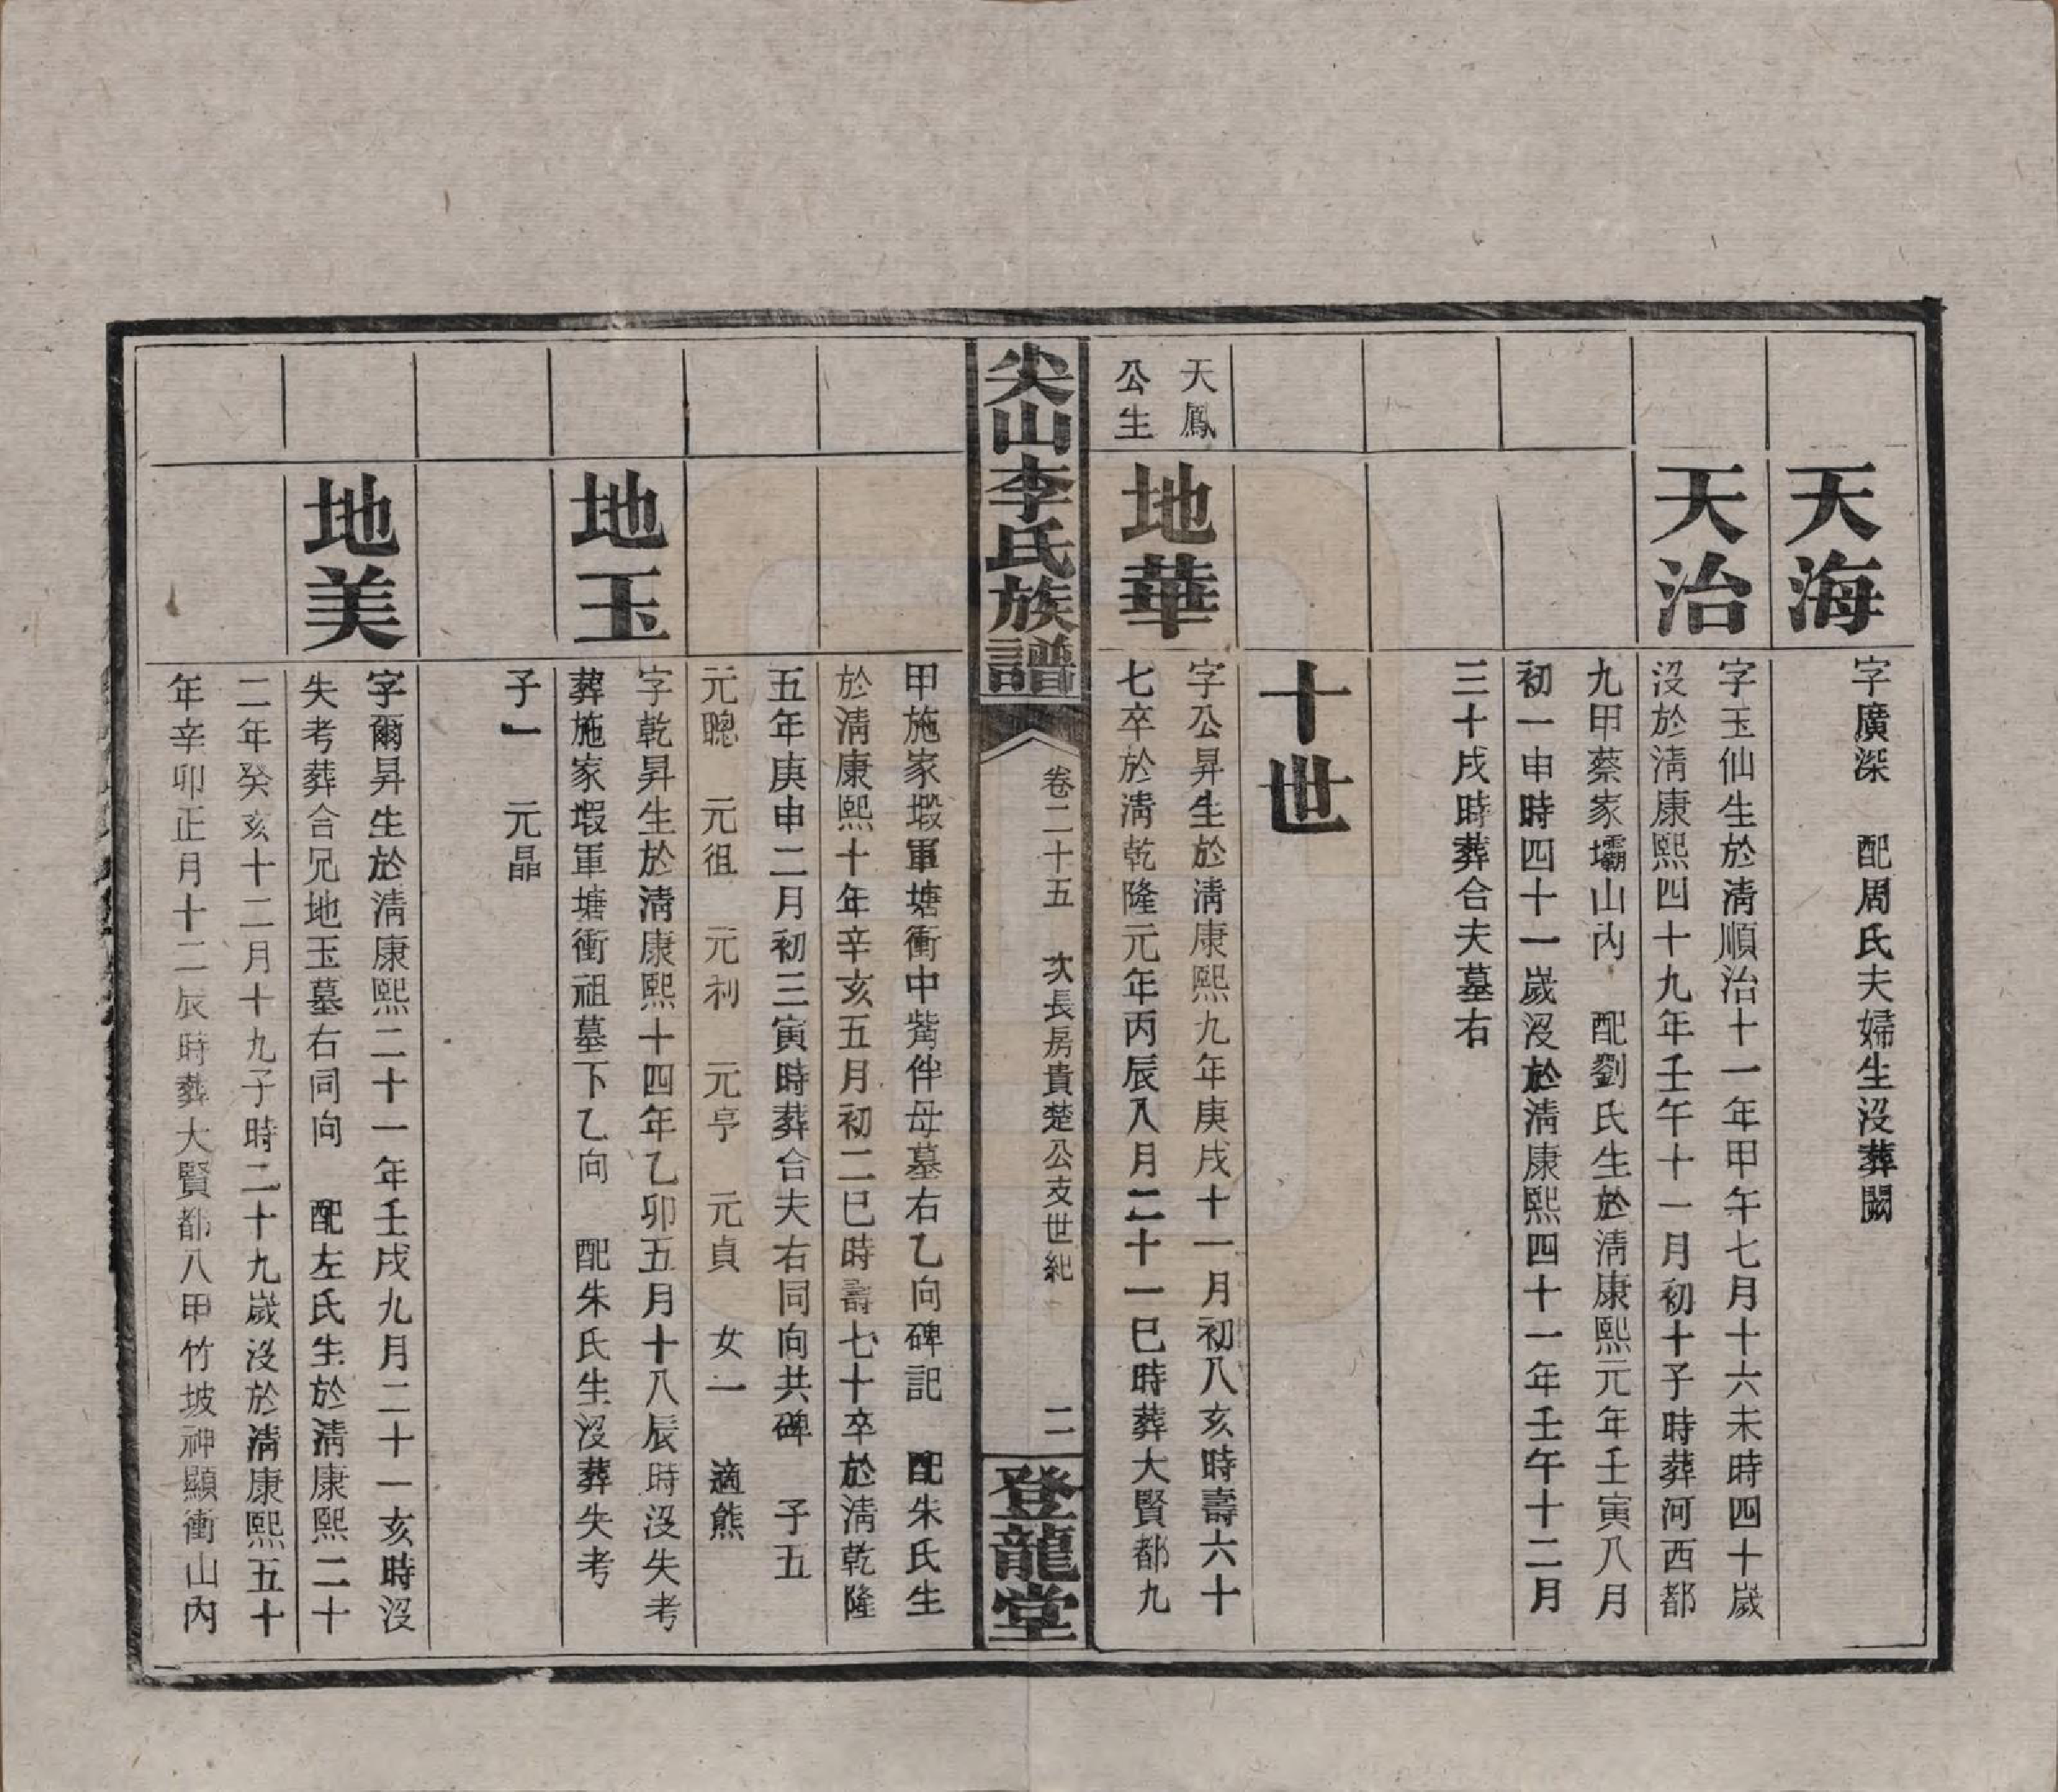 天海
字廣深　配周氏夫婦生沒葬闕
天治
字玉仙生於淸順治十一年甲午七月十六未時四十歲
沒於淸康熙四十九年壬午十一月初十子時葬河西都
九甲蔡家壩山內　配劉氏生於淸康熙元年壬寅八月
初一申時四十一歲沒於淸康熙四十一年壬午十二月
三十戌時葬合夫墓右
十世
天鳳
公生
地華
字公昇生於淸康熙九年庚戌十一月初八亥時壽六十
七卒於淸乾隆元年丙辰八月二十一巳時葬大賢都九
尖山李氏族譜
卷二十五　次長房貴楚公支世紀
二
登龍堂
甲施家塅軍塘衝中嘴伴母墓右乙向碑記　配朱氏生
於淸康熙十年辛亥五月初二巳時壽七十卒於淸乾隆
五年庚申二月初三寅時葬合夫右同向共碑　子五
元聰　元徂　元利　元亨　元貞　女一　適熊
地玉
字乾昇生於淸康熙十四年乙卯五月十八辰時沒失考
葬施家塅軍塘衝祖墓下乙向　配朱氏生沒葬失考
子一　元晶
地美
字爾昇生於淸康熙二十一年壬戌九月二十一亥時沒
失考葬合兄地玉墓右同向　配左氏生於淸康熙二十
二年癸亥十二月十九子時二十九歲沒於淸康熙五十
年辛卯正月十二辰時葬大賢都八甲竹坡神顯衝山內